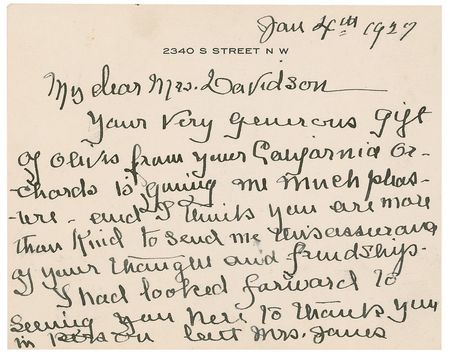 Jan 4th 1927
2340 S STREET N W
My dear Mrs. Davidson
Your very generous gift
of olives from your California Or-
chards is giving me much pleas-
-ure - and I think you are more
than kind to send me this assurance
of your thought and friendship.
I had looked forward to
seeing you here to thank you
in person but Mrs. James